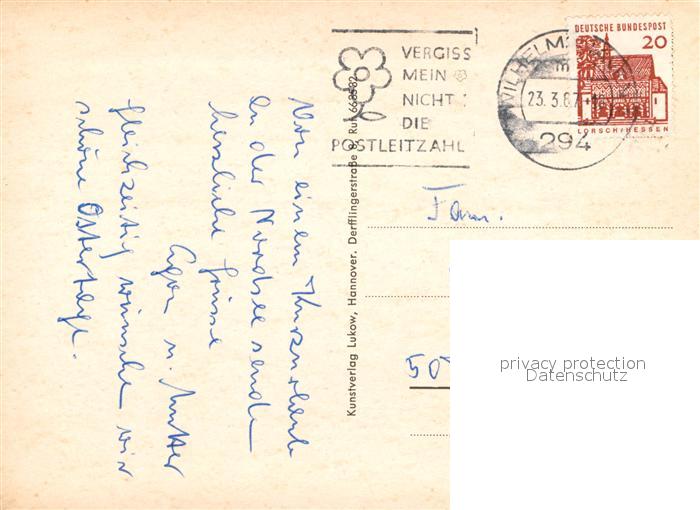 VERGISS
MEIN
NICHT
DIE
POSTLEITZAHL
23. 3. 67
294
DEUTSCHE BUNDESPOST
20
LORSCH/HESSEN
Von einem Kurzurlaub
an der Nordsee sende
herzliche Grüsse
u. Mutter
Gleichzeitig wünsche wir
schöne Ostertage.
Kunstverlag Lukow, Hannover. Derfflingerstraße Ruf 668582
Fam.
50
privacy protection
Datenschutz